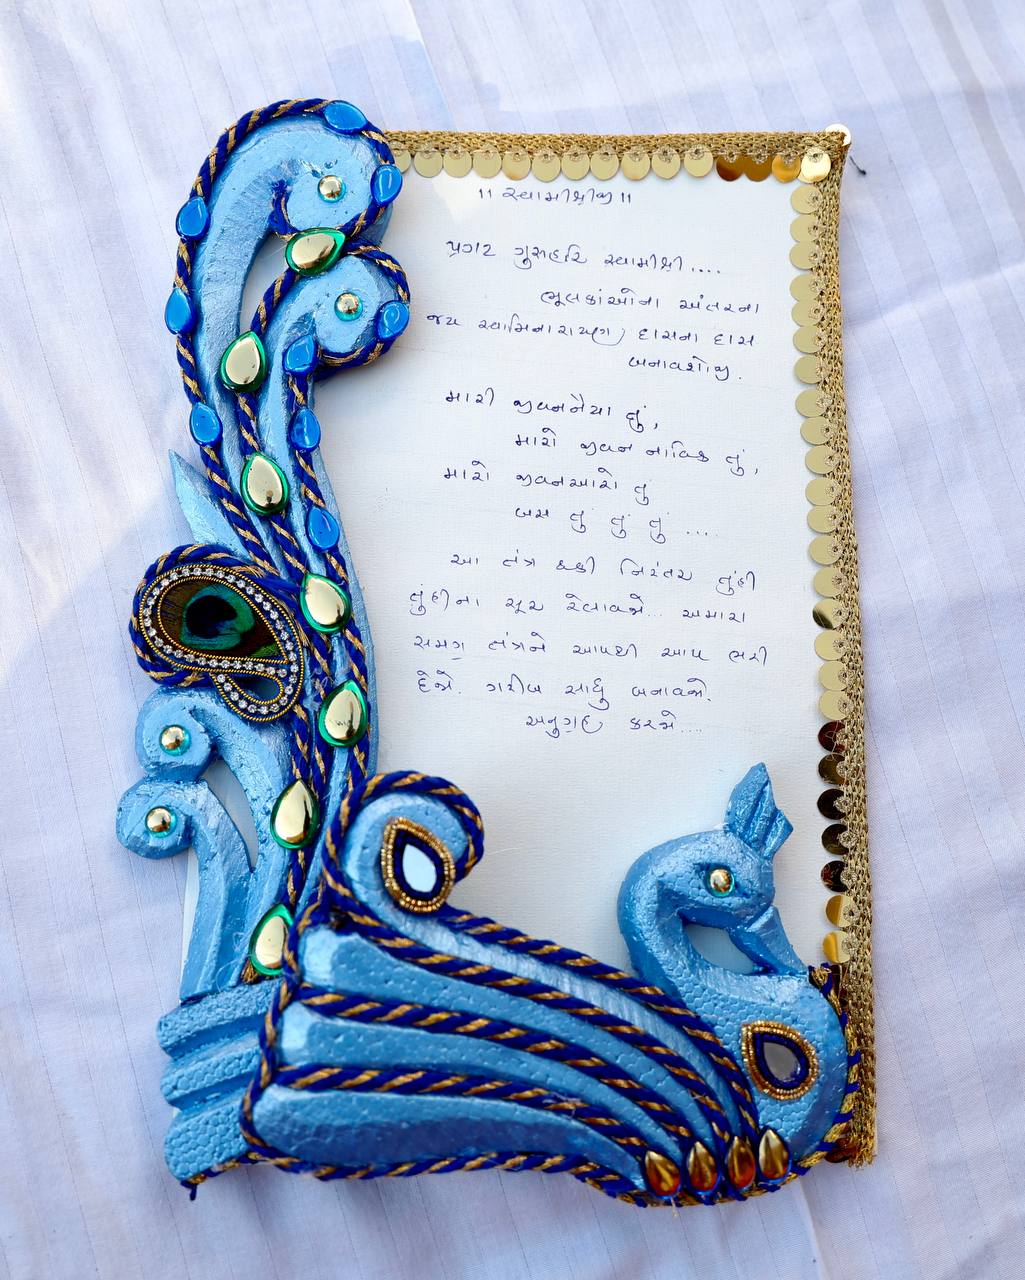 ॥ સ્વામીશ્રીજી ॥
પ્રગટ ગુરુહરિ સ્વામીશ્રી....
ભૂલકાંઓના અંતરના
જય સ્વામિનારાયણ દાસના દાસ
બનાવશોજી.
મારી જીવનનૈયા તું,
મારો જીવન નાવિક તું,
મારો જીવનઆરો તું
બસ તું તું તું ....
આ તંત્ર થકી નિરંતર તુંહી
તુંહીના સૂર રેલાવજો... અમારા
સમગ્ર તંત્રને આપથી આપ ભરી
દેજો. ગરીબ સાધુ બનાવજો.
અનુગ્રહ કરજો....